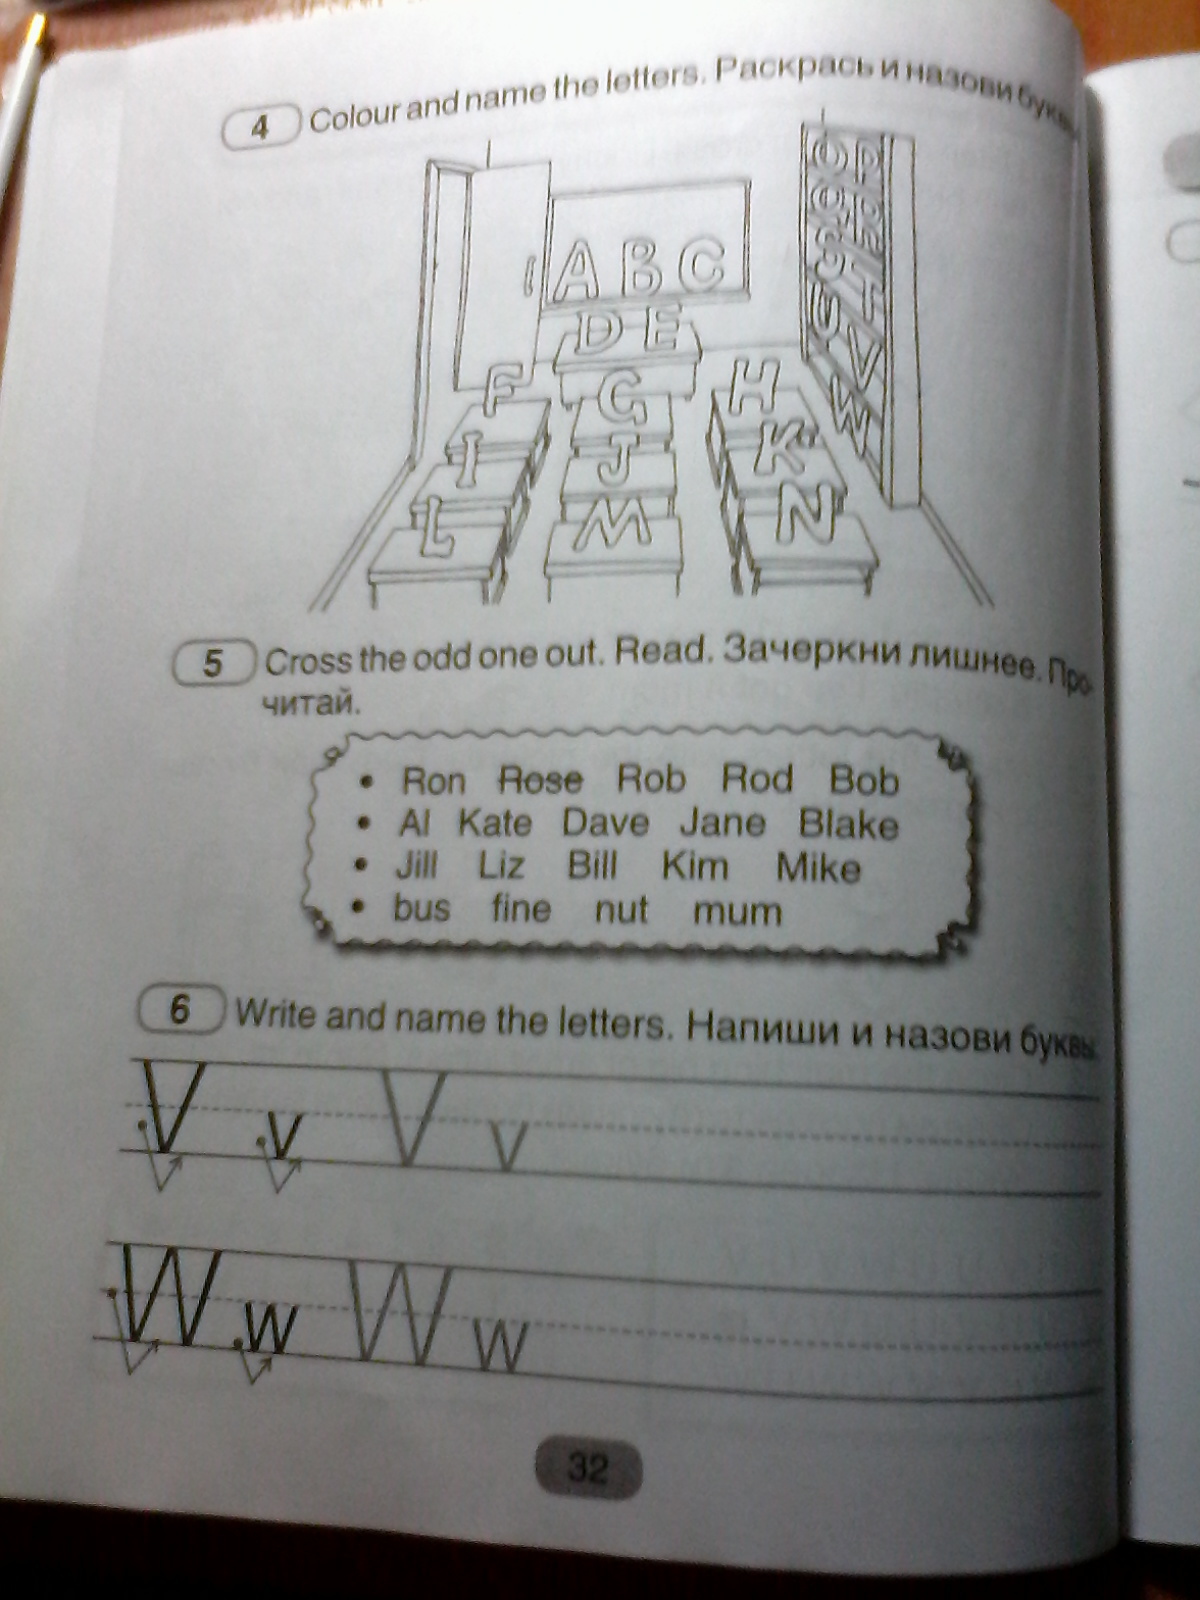 4 Colour and name the letters. Раскрась и назови буквы
A B C
D E
F G H
I J K
L M N
O P
V
W
5 Cross the odd one out. Read. Зачеркни лишнее. Про-
читай.
• Ron Rose Rob Rod Bob
• Al Kate Dave Jane Blake
• Jill Liz Bill Kim Mike
• bus fine nut mum
6 Write and name the letters. Напиши и назови буквы.
V v V v
W w W w
32